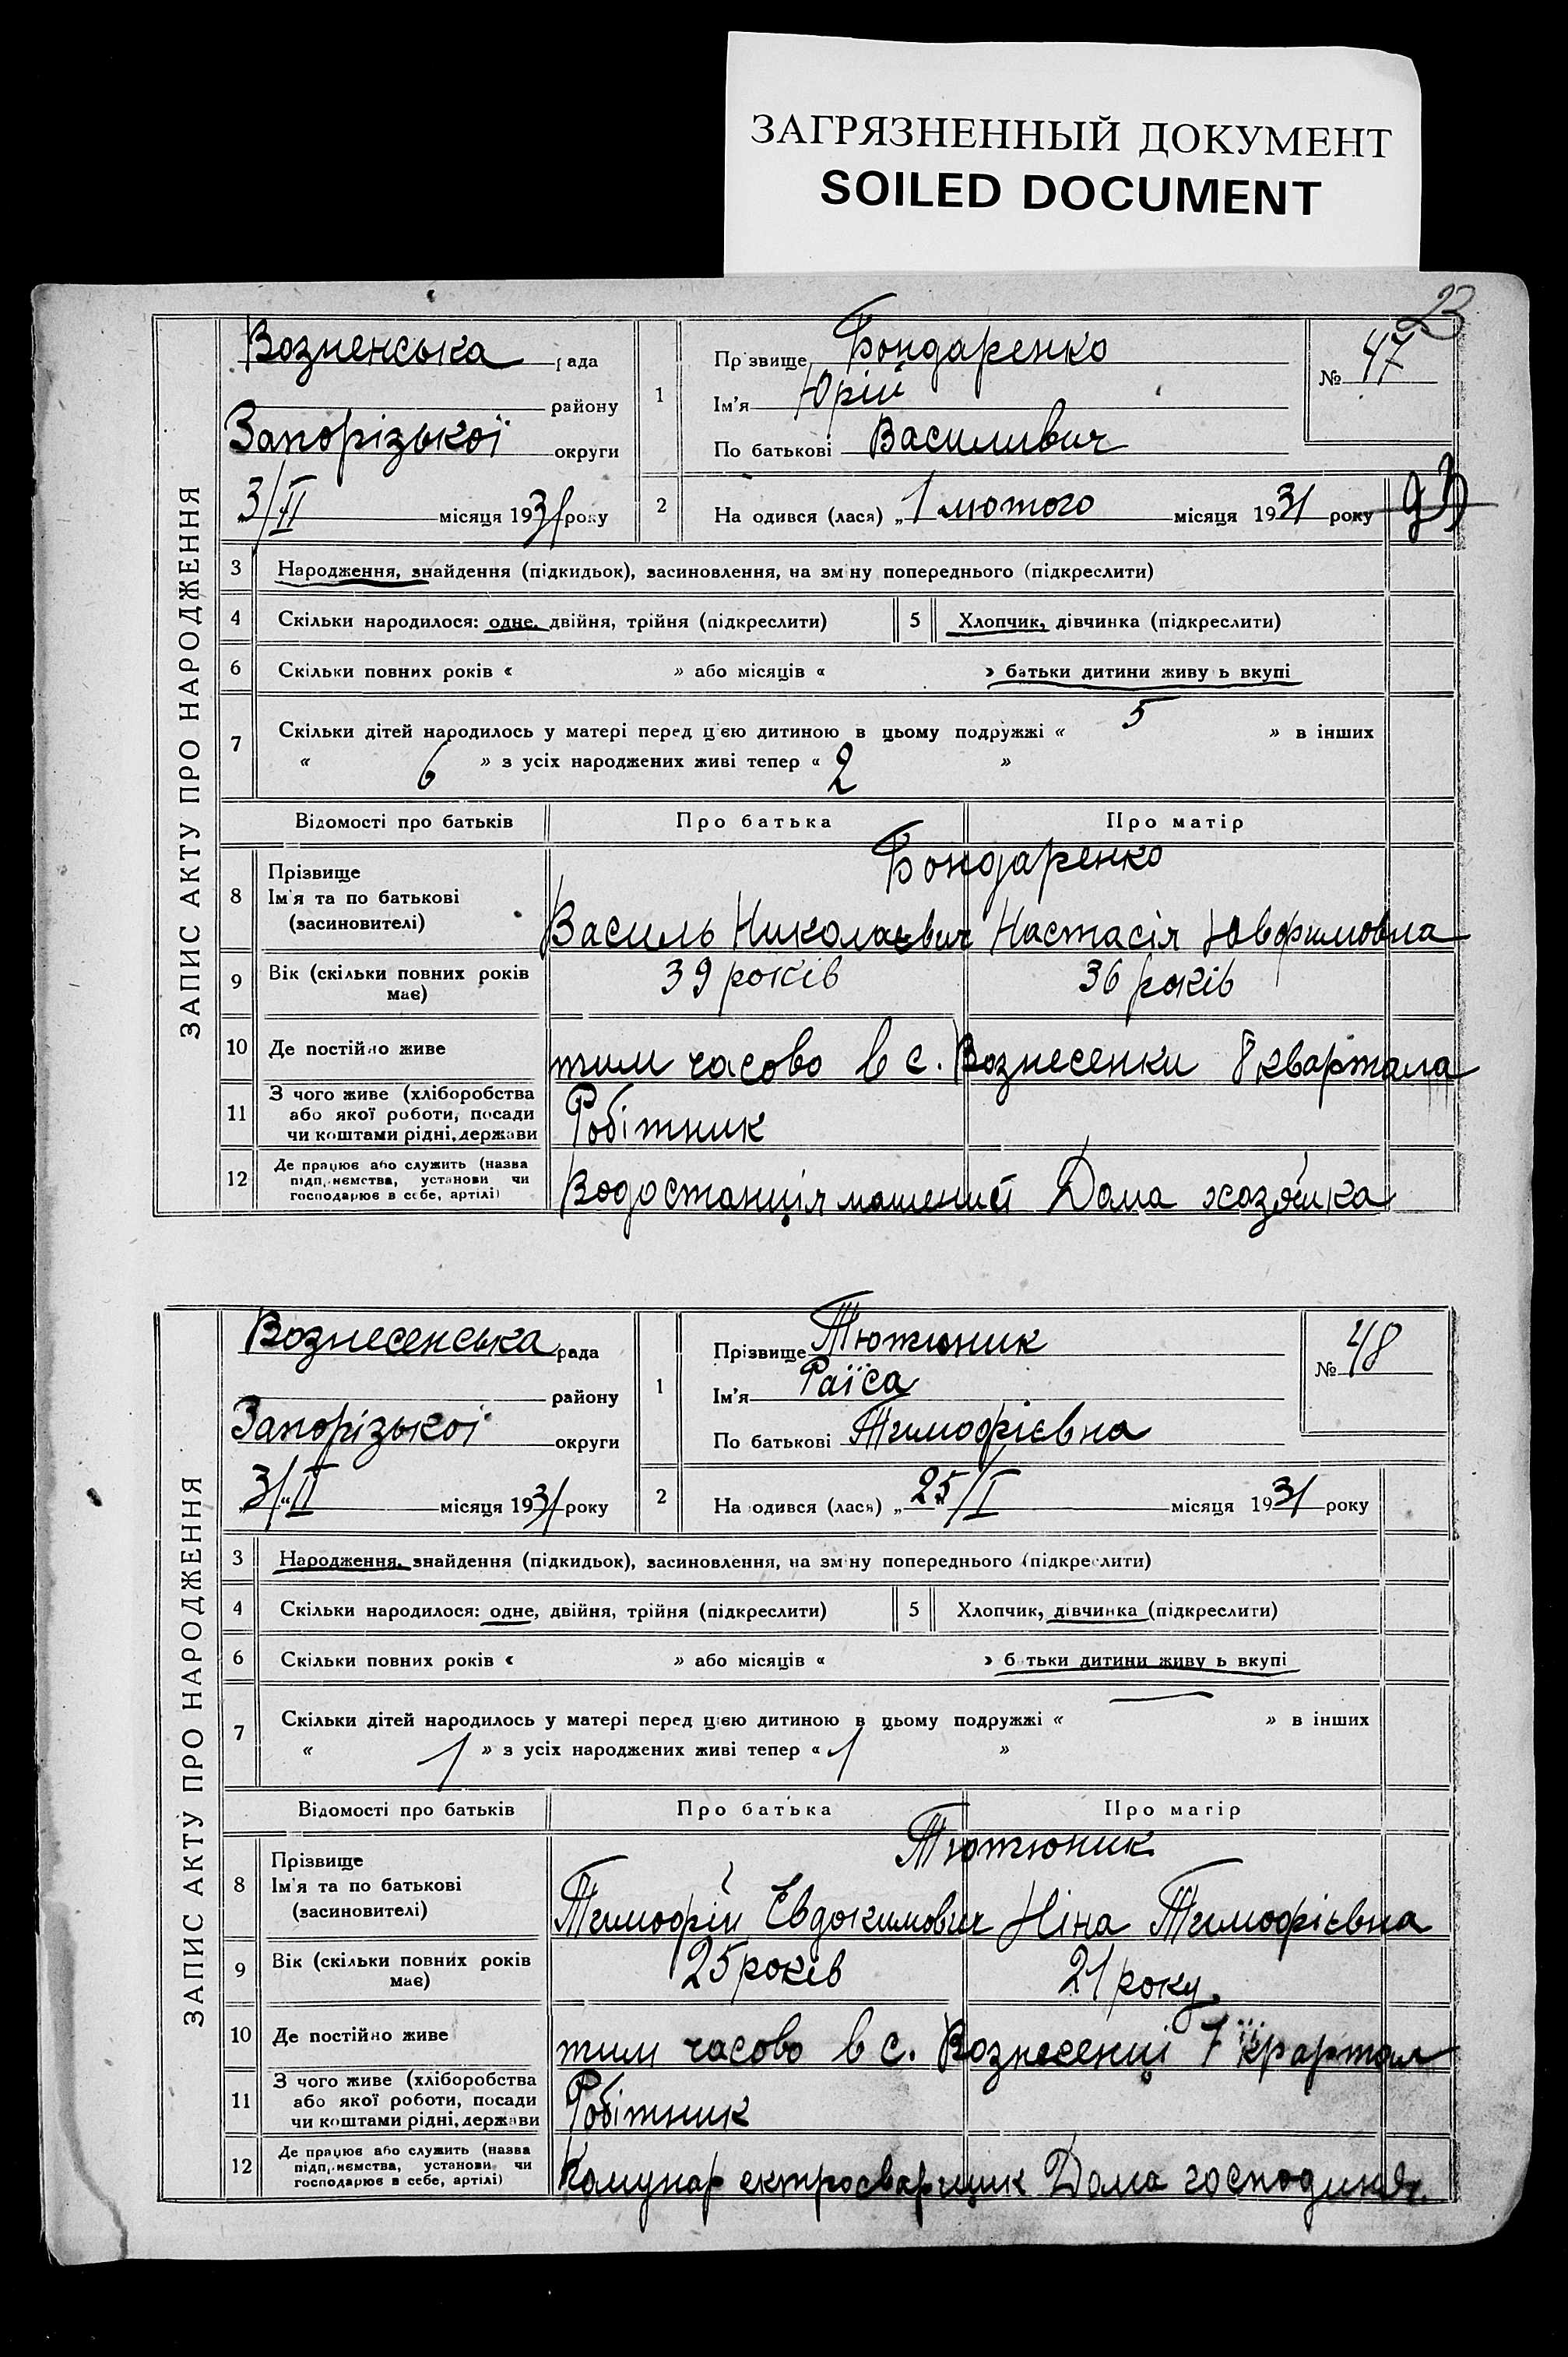 ЗАГРЯЗНЕННЫЙ ДОКУМЕНТ
SOILED DOCUMENT
23
ЗАПИС АКТУ ПРО НАРОДЖЕННЯ
Возненська рада
району
Запорізької округи
3/II місяця 1931 року
1
Пр звище Бондаренко
Ім'я Юрій
По батькові Василивич
№ 47
2
На одився (лася) „ 1 лютого місяця 1931 року
3 Народження, знайдення (підкидьок), засиновлення, на зм ну попереднього (підкреслити)
4 Скільки народилося: одне, двійня, трійня (підкреслити) 5 Хлопчик, дівчинка (підкреслити)
6 Скільки повних років « » або місяців « » батьки дитини живу ь вкупі
7 Скільки дітей народилось у матері перед ц єю дитиною в цьому подружжі « 5 » в інших
« 6 » з усіх народжених живі тепер « 2 »
Відомості про батьків Про батька Про матір
8 Прізвище Бондаренко
Ім'я та по батькові
(засиновителі) Василь Николаєвич Настасія Ювфимовна
9 Вік (скільки повних років має) 39 років 36 років
10 Де постійно живе тим часово в с. Вознесенки 8 квартала
11 З чого живе (хліборобства
або якої роботи, посади
чи коштами рідні, держави Робітник
12 Де працює або служить (назва
підп, иємства, установи чи
господарює в себе, артілі) Водостанція машений Дома хозяйка
ЗАПИС АКТУ ПРО НАРОДЖЕННЯ
Вознесенська рада
району
Запорізької округи
3/II місяця 1931 року
1
Прізвище Тютюник
Ім'я Раїса
По батькові Тимофієвна
№ 48
2
На одився (лася) „ 25/I місяця 1931 року
3 Народження, знайдення (підкидьок), засиновлення, на зм ну попереднього (підкре лити)
4 Скільки народилося: одне, двійня, трійня (підкреслити) 5 Хлопчик, дівчинка (підкреслити)
6 Скільки повних років « » або місяців « » б тьки дитини живу ь вкупі
7 Скільки дітей народилось у матері перед цією дитиною в цьому подружжі « — » в інших
« 1 » з усіх народжених живі тепер « 1 »
Відомості про батьків Про батька Про матір
8 Прізвище Тютюник
Ім'я та по батькові
(засиновителі) Тимофій Євдокимович Ніна Тимофієвна
9 Вік (скільки повних років має) 25 років 21 року
10 Де постійно живе тим часово в с. Вознесенці 7 квартал
11 З чого живе (хліборобства
або якої роботи, посади
чи коштами рідні, держави Робітник
12 Де працює або служить (назва
підп, иємства, установи чи
господарює в себе, артілі) Комунар ектросварщик Дома господиня.